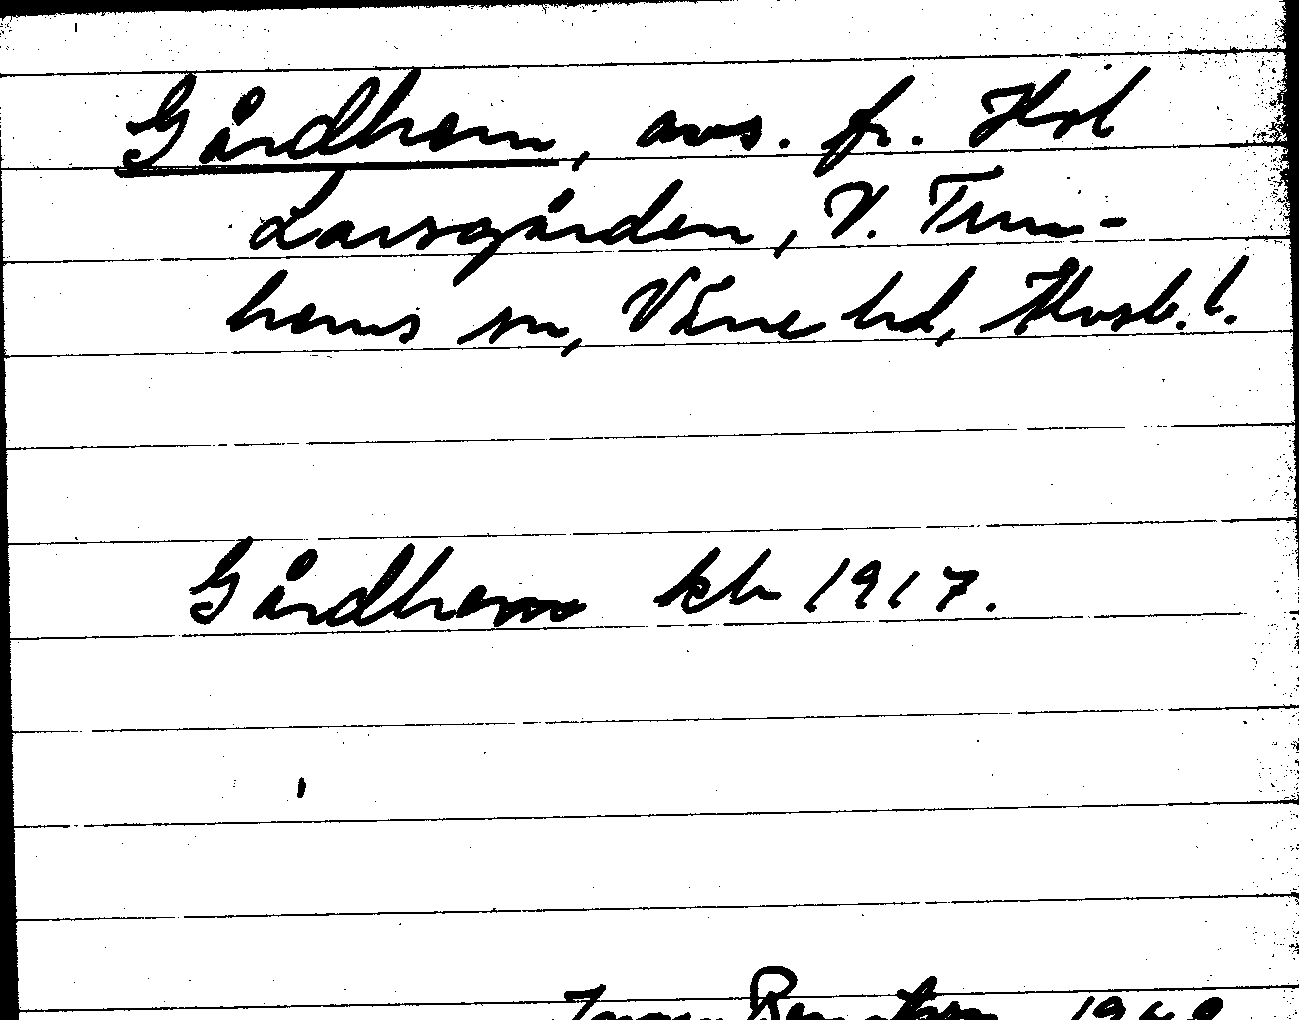 Gårdhem, avs. fr. Hol
Larsgården, V. Tun-
hems sn, Väne hd, Älvsb. l.
Gårdhem kb 1917.